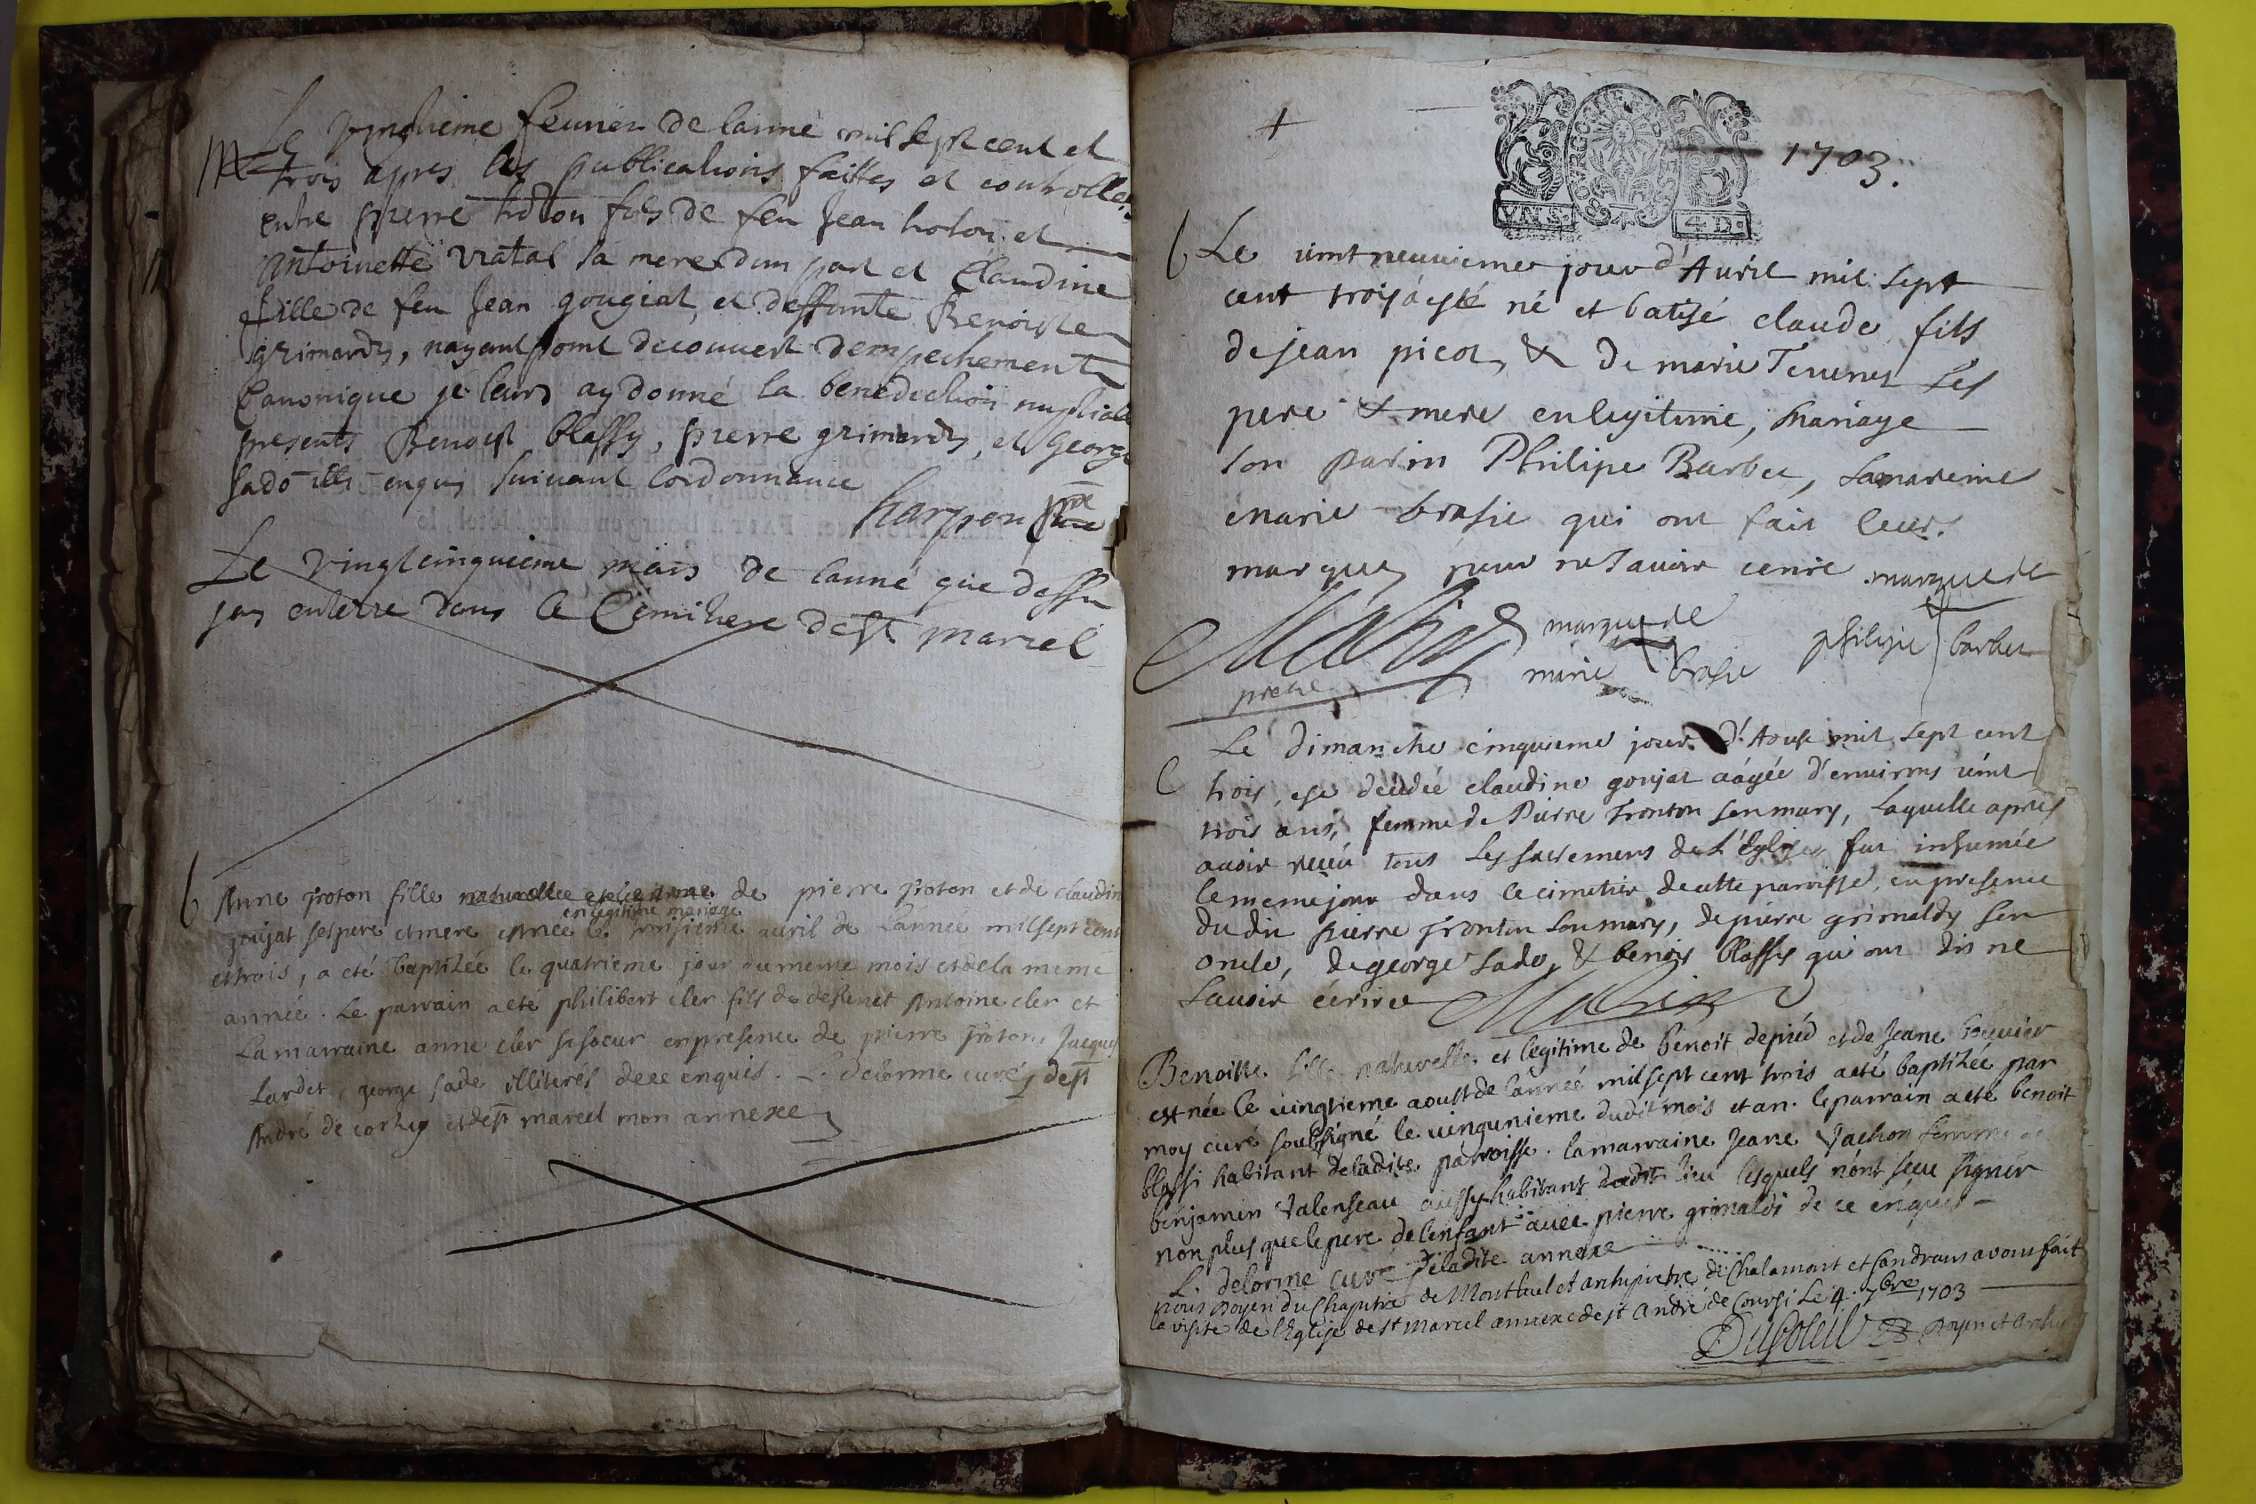 M Le vinctieme feurier de lanne mil sept cent et
trois apres les publications faittes et controlles
entre pierre troton fils de feu Jean troton et
antoinette viatal sa mere dun part et Claudine
fille de feu Jean gougiat et deffunte Benoiste
grimardy, nayant point decouvert dempechement
Canonique je leurs ay donné la benediction nuptiale
presents Benoist blassy, pierre grimardy, et George
sado enquis suivant lordonnance
harpon
Le vingtcinquieme mars de lanné que dessu
jay enterre dans le Cemitiere de st marcel
b Anne troton fille naturelle et legitime de pierre troton et de claudin
en legitime mariage
goujat ses pere et mere est née le troisieme auril de lannée mil sept cent
et trois, a eté baptizée le quatrieme jour du meme mois et de la meme
année. Le parrain a ete philibert cler fils de deffunct Antoine cler et
La marraine anne cler sa soeur en presence de pierre troton, Jacques
Lardet, george sade illiterés de ce enquis. L. delorme curé de st
André de corhy et de st marcel mon annexe
1703.
BOURGOGNE
VN S. 4 D.
b Le vint neuuieme jour d'Auril mil sept
cent trois à esté né et batisé claude fils
de jean picot & de marie Teuenet ses
pere & mere en legitime, mariage
son parin Philipe Barbe, sa mareine
marie brasie qui ont fait leurs
marques pour ne sauoir ecrire marque de
marque de
philipe barbe
marie brasie
pretre
Le dimanche cinquieme jour d'Aoust mil sept cent
trois, est décédée claudine goujat aagée d'enuirons vint
trois ans, femme de Pierre Tronton son mary, laquelle aprés
auoir receu tous les sacremens de L'Eglise fut inhumée
le meme jour dans le cimetier de cette parroisse, en presence
du dit pierre Tronton son mary, de pierre grimaldy son
oncle, de george Sado, & benois blassy qui ont dis ne
sauoir écrire
Benoitte fille naturelle et legitime de benoit depiéd et de Jeane bouuier
est née le uingtieme aoust de lannéé mil sept cent trois a eté baptizée par
moy curé soubsigné le uingunieme dudit mois et an. le parrain a eté benoit
blassi habitant de ladite parroisse. la marraine Jeane Vachon femme de
benjamin Valenseau aussy habitant dudit lieu lesquels n'ont sceu signer
non plus que le pere de l'enfant auec pierre grimaldi de ce enquis
L. delorme curé de ladite annexe
nous Doyen du Chapitre de Montluel et archiprestre de Chalamont et sandrans avons fait
la visite de l'Eglise de st Marcel annexe de st André de Corsi Le 4. 7bre 1703
Dusoleil Doyen et Archi